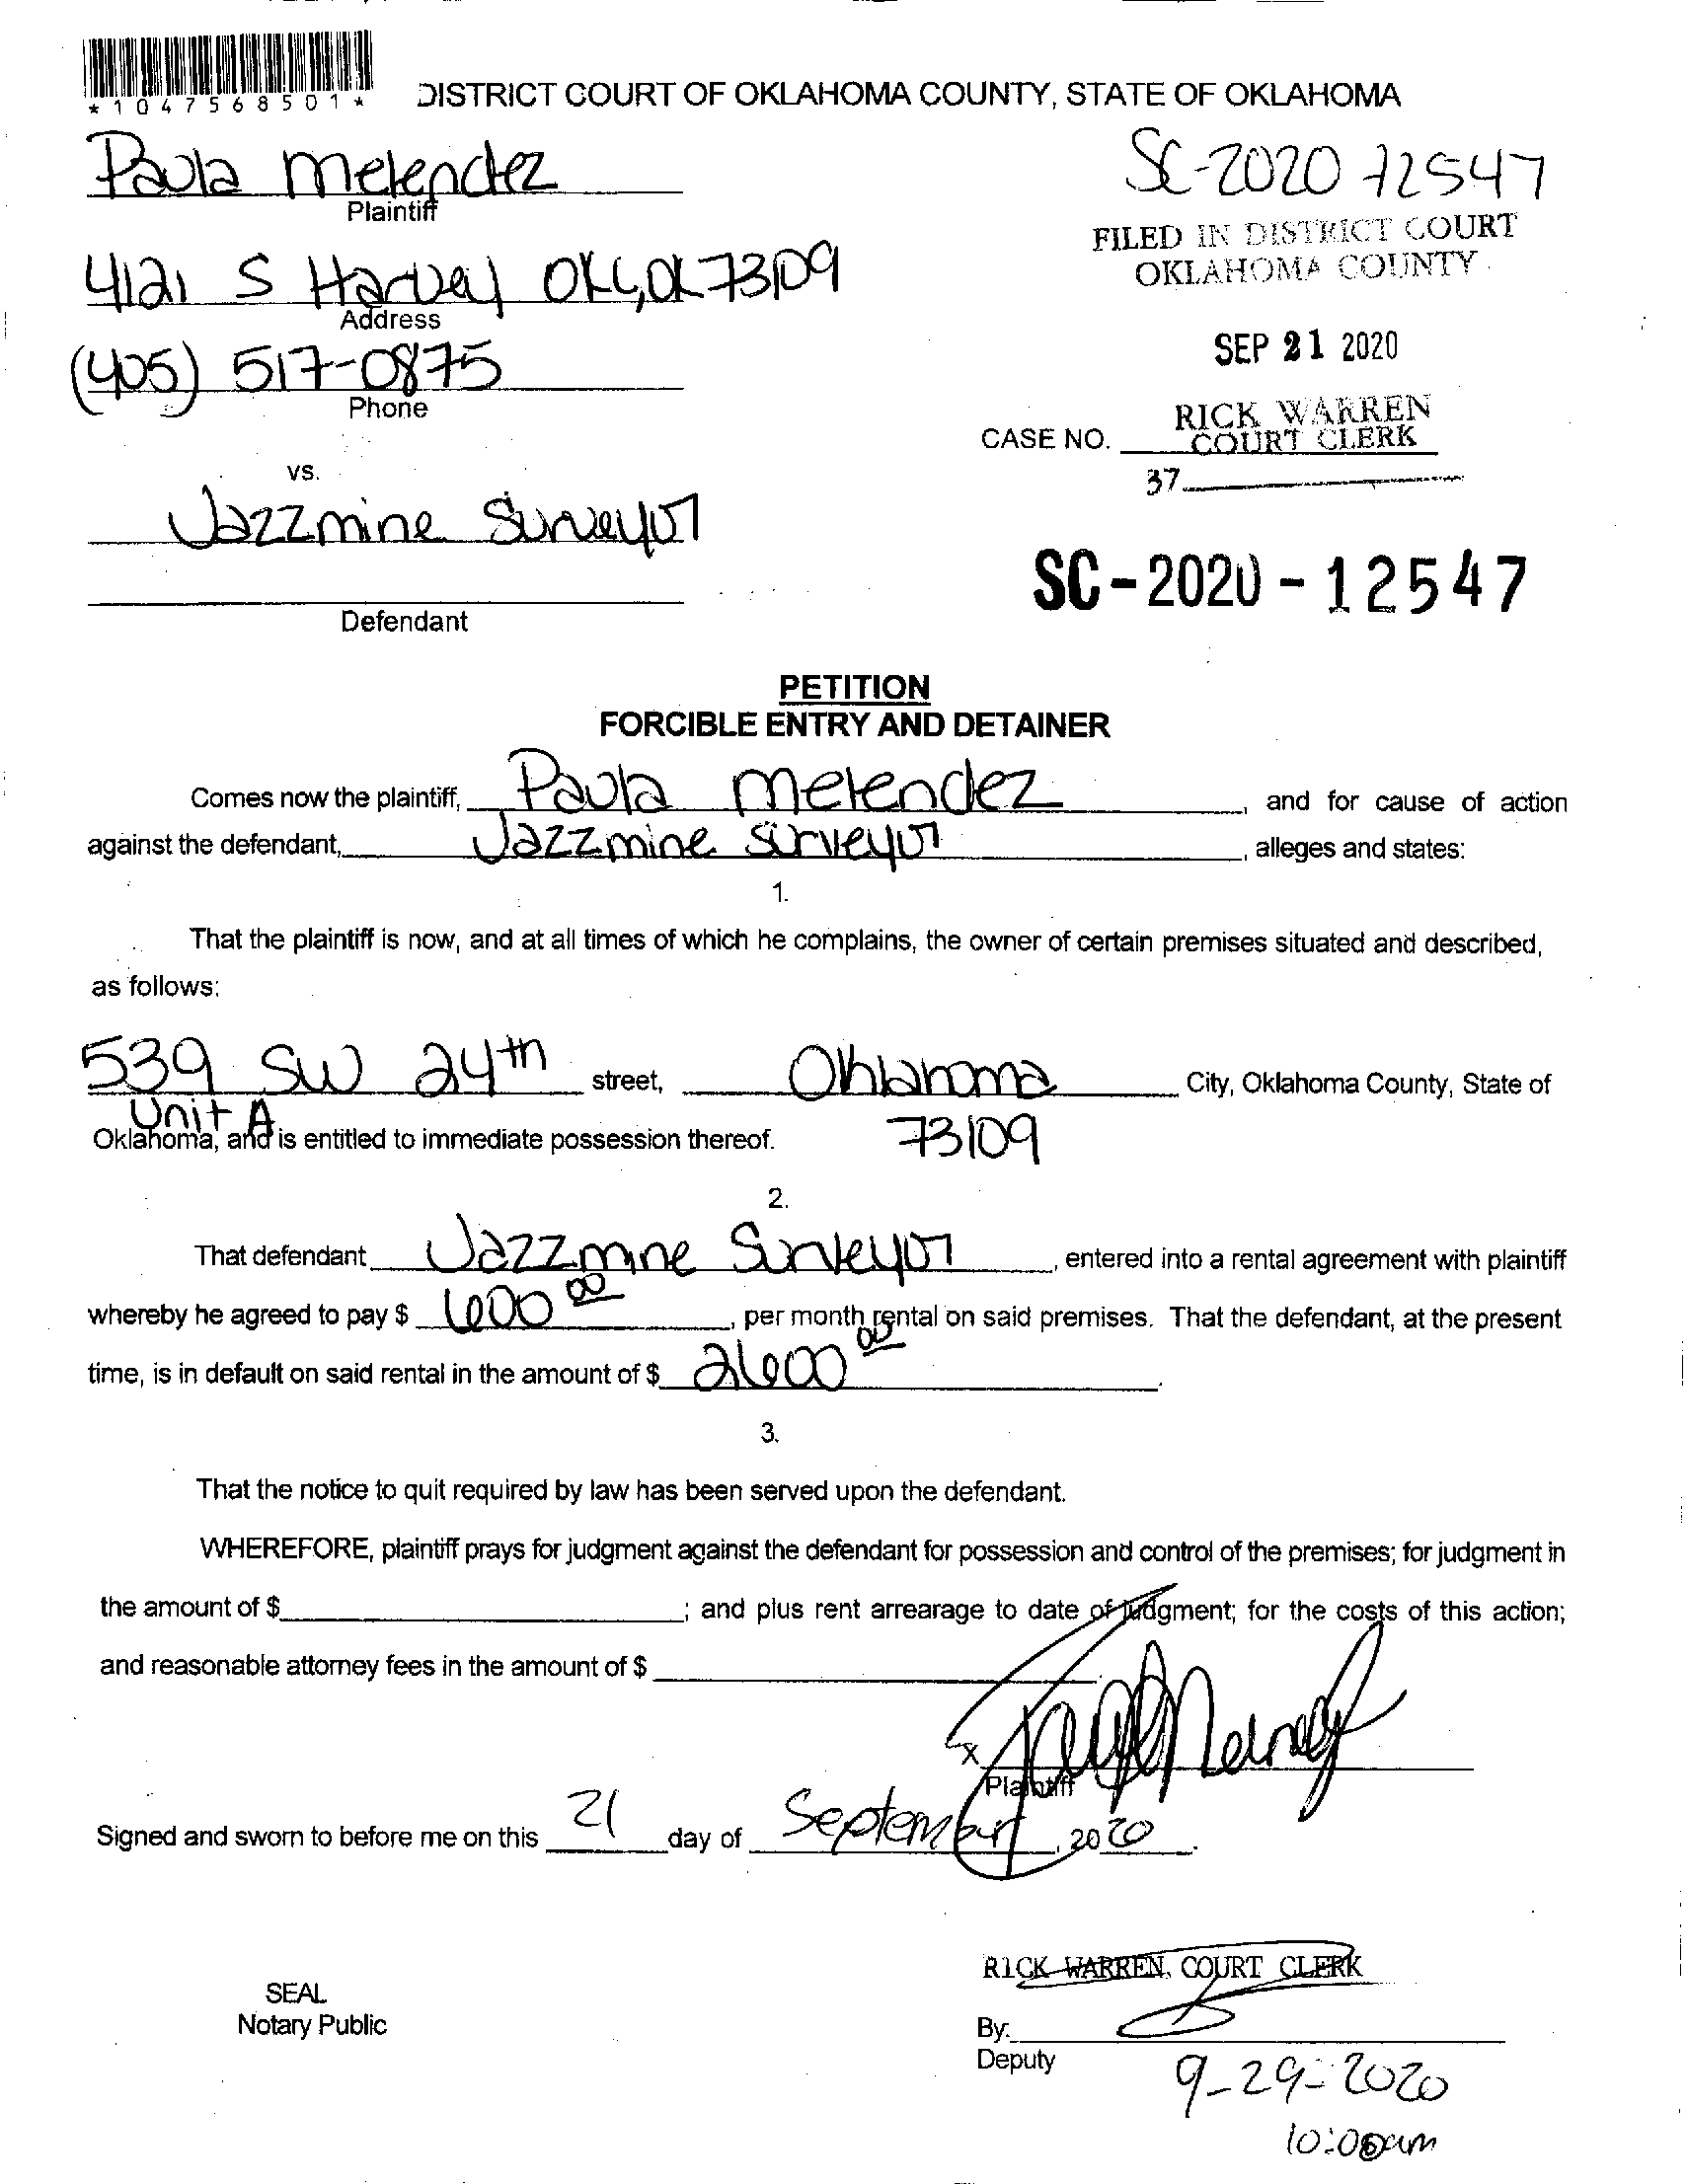 *1047568501*
DISTRICT COURT OF OKLAHOMA COUNTY, STATE OF OKLAHOMA
Paula Melendez
Plaintiff
SC-2020 12547
FILED IN DISTRICT COURT
OKLAHOMA COUNTY
4121 S Harvey OKC, OK 73109
Address
SEP 21 2020
(405) 517-0875
Phone
RICK WARREN
CASE NO. COURT CLERK
37
vs.
Jazzmine Surveyor
SC-2020-12547
Defendant
PETITION
FORCIBLE ENTRY AND DETAINER
Comes now the plaintiff, Paula Melendez, and for cause of action
against the defendant, Jazzmine Surveyor, alleges and states:
1.
That the plaintiff is now, and at all times of which he complains, the owner of certain premises situated and described,
as follows:
539 SW 24th street, Oklahoma City, Oklahoma County, State of
Unit A 73109
Oklahoma, and is entitled to immediate possession thereof.
2.
That defendant Jazzmine Surveyor, entered into a rental agreement with plaintiff
whereby he agreed to pay $ 600 00, per month rental on said premises. That the defendant, at the present
time, is in default on said rental in the amount of $ 2600 00.
3.
That the notice to quit required by law has been served upon the defendant.
WHEREFORE, plaintiff prays for judgment against the defendant for possession and control of the premises; for judgment in
the amount of $ ; and plus rent arrearage to date of judgment; for the costs of this action;
and reasonable attorney fees in the amount of $
x
Plaintiff
Signed and sworn to before me on this 21 day of September, 2020.
RICK WARREN, COURT CLERK
SEAL
Notary Public
By:
Deputy
9-29-2020
10:00am